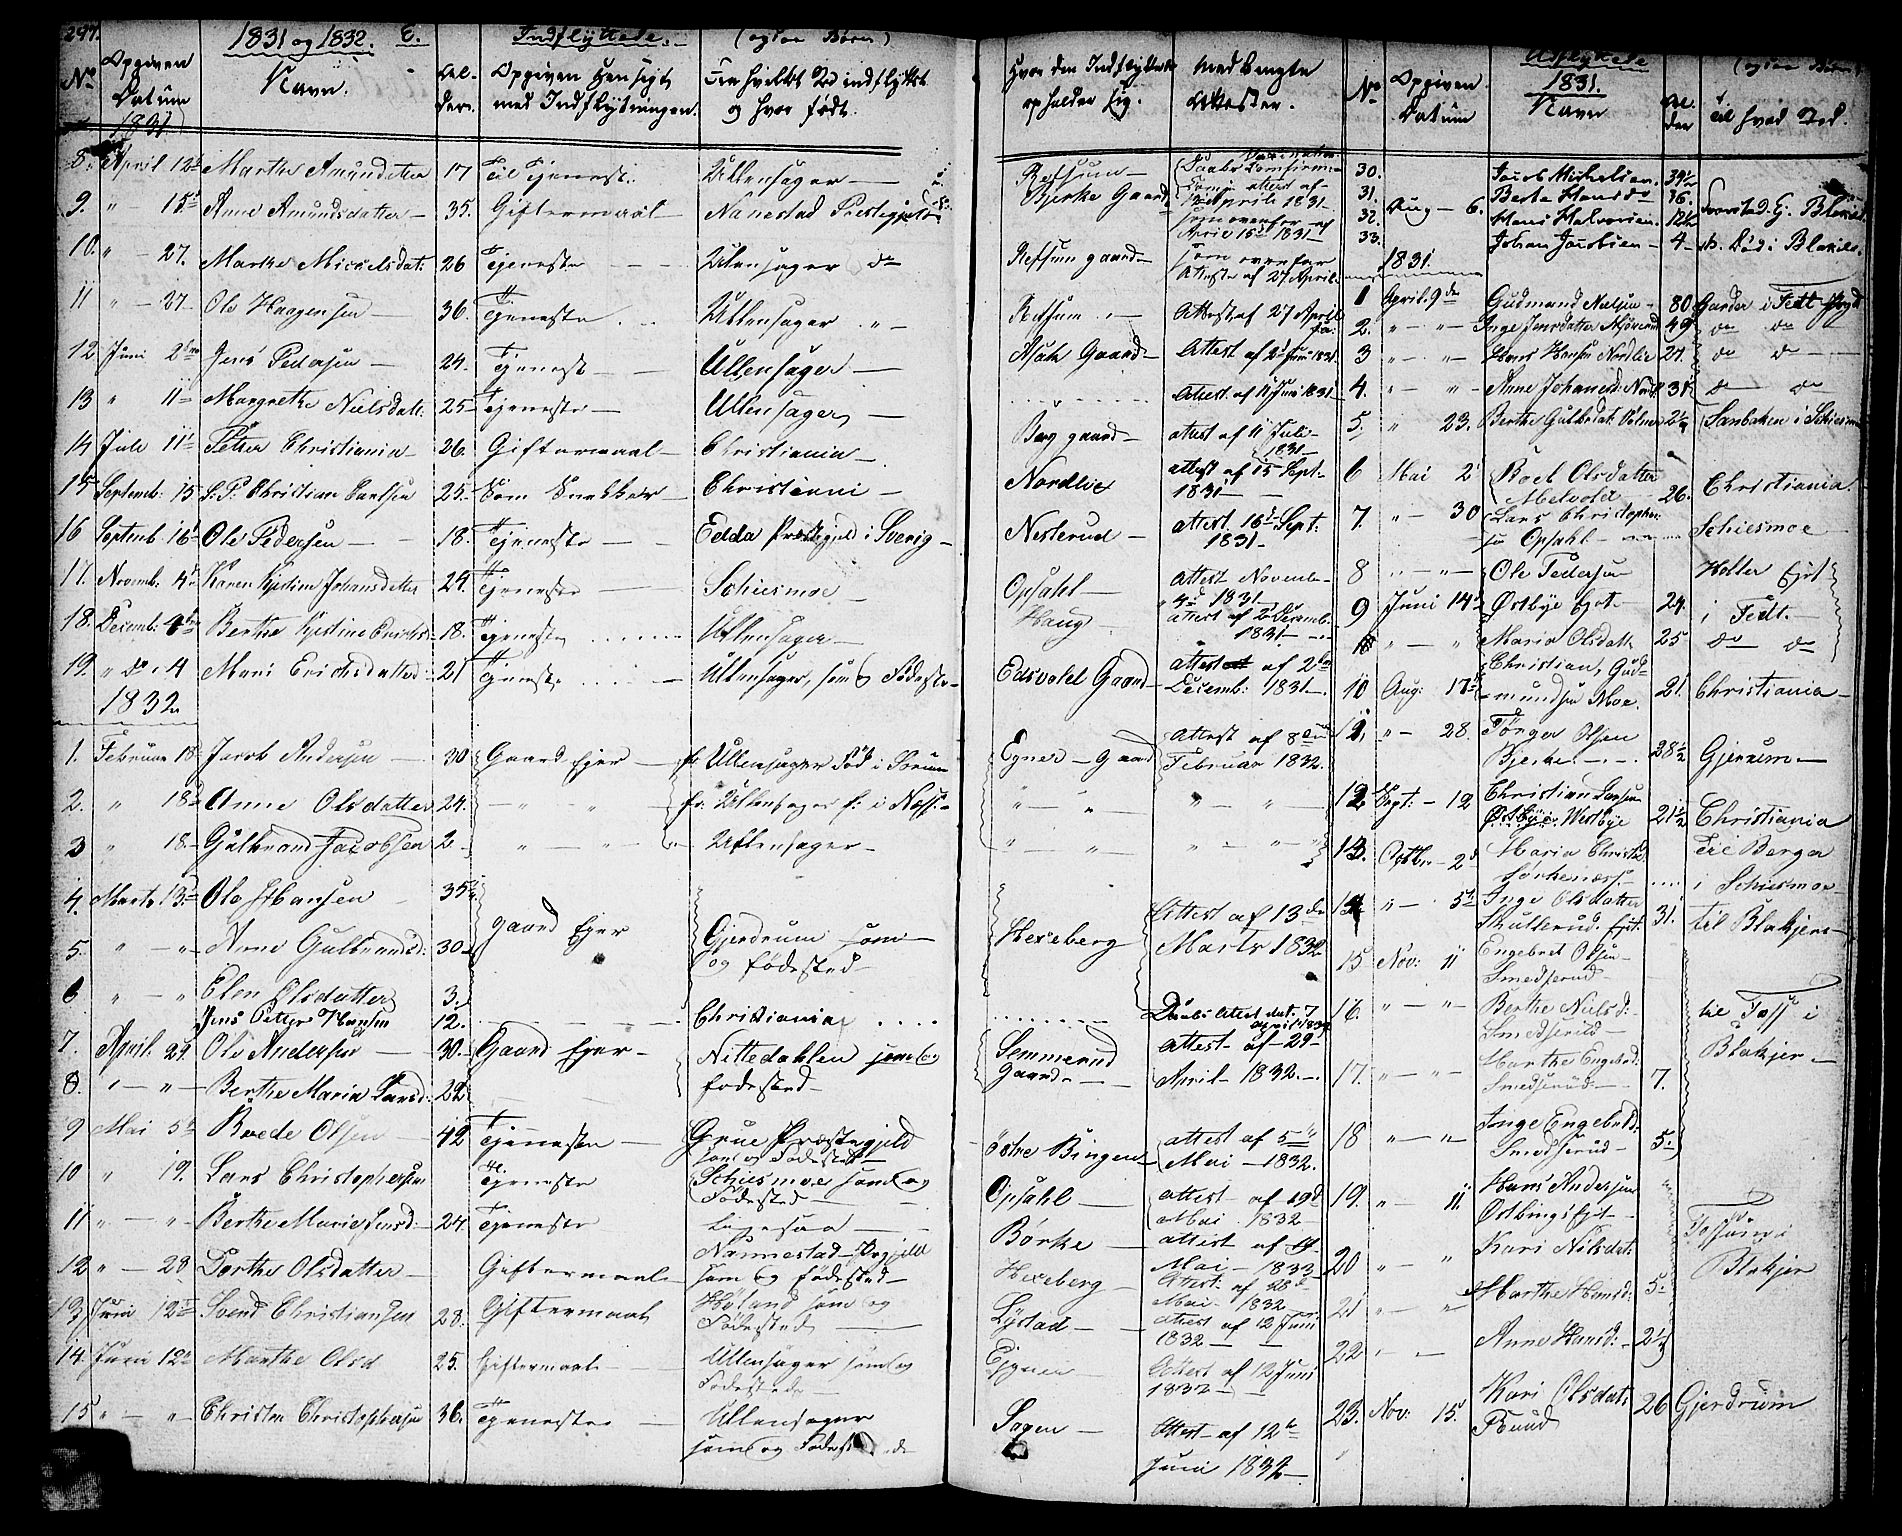 297.
1831 og 1832. E. Indflyttede. (ogsaa Børn)
No Opgiven Datum Navn. Alder. Opgiven Hensigt med Indflytningen. Fra hvilket Sted indflyttet og hvor født. Hvor den Indflyttede opholder sig. Medbragte Attester.
1831
8. April 12 Marthe Amundsdatter 17 Til Tjeneste Ullensager Refsum
9. " 15 Anne Amundsdatter 35. Giftermaal Nanestad Præstegjeld Bjerke Gaard April 15 1831
10. " 27. Marthe Mickelsdat: 26 Tjeneste Ullensager Refsum gaard som ovenfor Attest af 27 April
11 " 27 Ole Haagensen 36. Tjeneste Ullensager Refsum Attest af 27 April
12 Juni 2 Jens Pedersen 24. Tjeneste Ullensager Gaard Attest af 2 Juni 1831
13 " 11 Margrethe Nielsdatt: 25 Tjeneste Ullensager Attest af 11 Juni 1831
14 Juli 11 Petter Christiania 26. Giftermaal Christiania Berg gaard attest af 11 Juli 1831
15 Septemb: 15 S. P. Christian Carlsen 25. Som Snekker Christiani Nordlie attest af 15 Sept: 1831
16 Septemb 16 Ole Pedersen 18. Tjeneste Edda Præstegjeld i Sverig Nesterud attest 16 Sept: 1831
17. Novemb: 4 Karen Kjestine Johansdatter 24. Tjeneste Schiesmoe Opsahl Attest November 4 1831
18. Decemb: Berthe Kjestine Erichs 18. Tjeneste Ullensager Haug attest af 2 Decemb. 1831
19. " do. 4 Mari Erichsdatter 21 Tjeneste Ullensager, som og Fødested Edsvold Gaard attest af 2 Decemb: 1831
1832
1. Februar 18 Jacob Andersen 30 Gaard Ejer fr. Ullensager Fød i Sørum Egner Gaard Attest af 8de Februar 1832.
2. " 18 Anne Olsdatter 24. " " fr: Ullensager f: i Næss " " " "
3 " 18 Gulbrand Jacobsen 2. " " Ullensager " " " "
4. Marts 13 Ole Hansen 35 Gaard Ejer Gjerdrum som og fødested Hexeberg Attest af 13de Marts 1832
5. " " Anne Gulbrandsd: 30
6 " " Elen Olsdatter 3.
Jens Petter Hansen 12. Christiania Daabs Attest dat. 7 april 1832
7. April 29. Ole Andersen 30. Gaard Ejer Nittedahlen som og fødested Semmerud Gaard attest af 29 April 1832.
8. " " Berthe Maria Larsd: 22
9 Mai 5 Brede Olsen 42 Tjeneste Grue Præstegjeld som og Fødested Østre Bingen attest af 5 Mai 1832.
10 " 19. Lars Christophersen Tjeneste Schiesmoe som og Fødested Opsahl attest af 19 Mai 1832
11 " " Berthe Marie Jensd: 24 Tjeneste Ligesaa Børke attest af Mai 1832
12 " 28 Dorthe Olsdatter Giftermaal Nannestad Prgjeld som og fødested Hexeberg Attest: af 28 Mai 1832
13 Juni 12 Svend Christiansen 28. Giftermaal Høland som og Fødested Lystad attest af 12 Juni 1832
14. Juni 12 Marthe Olsd 25. Giftermaal Ullensager som og Fødested Egner Attest af 12 Juni 1832
15 " " Christen Christophersen 36. Tjeneste Ullensager som og Fødested Sagen Attest af 12te Juni 1832
Udflyttede 1831. (ogsaa Børn)
No Opgiven Datum Navn Alder Til hvad Sted.
30. Jacob Mickelsen 39½
31. Aug 6. Berte Hansd 36.
32. Hans Halvorsen 12½
33. Johan Jacobsen 4
1831.
1 April 9de Gudmand Nielsen 80 Garder i Fedt
2. " " Inge Jensdatter 49 do do
3 " " Hans Hansen Nordlie 27. do do
4. " " Anne Johannesd: Nordl 31 do do
5. " 23. Berthe Gulbrdat: 2½ Sanbakken i Schiesmo
6 Mai 2 Boel Olsdatter Melvold 26. Christiania
7. " 30 Lars Christophersen Opsahl Schiesmoe
8 " " Ole Pedersen Holter Ejet
9 Juni 14 Østbye Ejet 24. i Fedt.
" " Maria Olsdatt 25 do do
10 Aug: 17 Christian Gudmundsen Moe. 21. Christiania
11 " 28. Torger Olsen Bjerke 28½ Gjerrum
12 Sept: 12 Christian Larsen Østbye Westbye 21½ Christiania
13. Octbr. 2 Maria Christi Til Berger i Schiesmoe
14 " 5 Inge Olsdatter Skullerud Ejet: 31. til Blakjer
15 Nov: 11 Engebret Olsen Smedserud
16. " " Berthe Nielsd: Smedserud til Foss i Blakjer
17. " " Marthe Engebrd: Smedserud 7.
18 " " Inge Engebrd: Smedserud 5.
19. " 11. Hans Andersen Østbings Ejet
20 " " Kari Nilsdat: Blakjer
21 " " Marthe Hansd: 5
22 " " Anne Hansd: 2½
23. Nov: 15. Kari Olsdat: Ruud 26 Gjerdrum